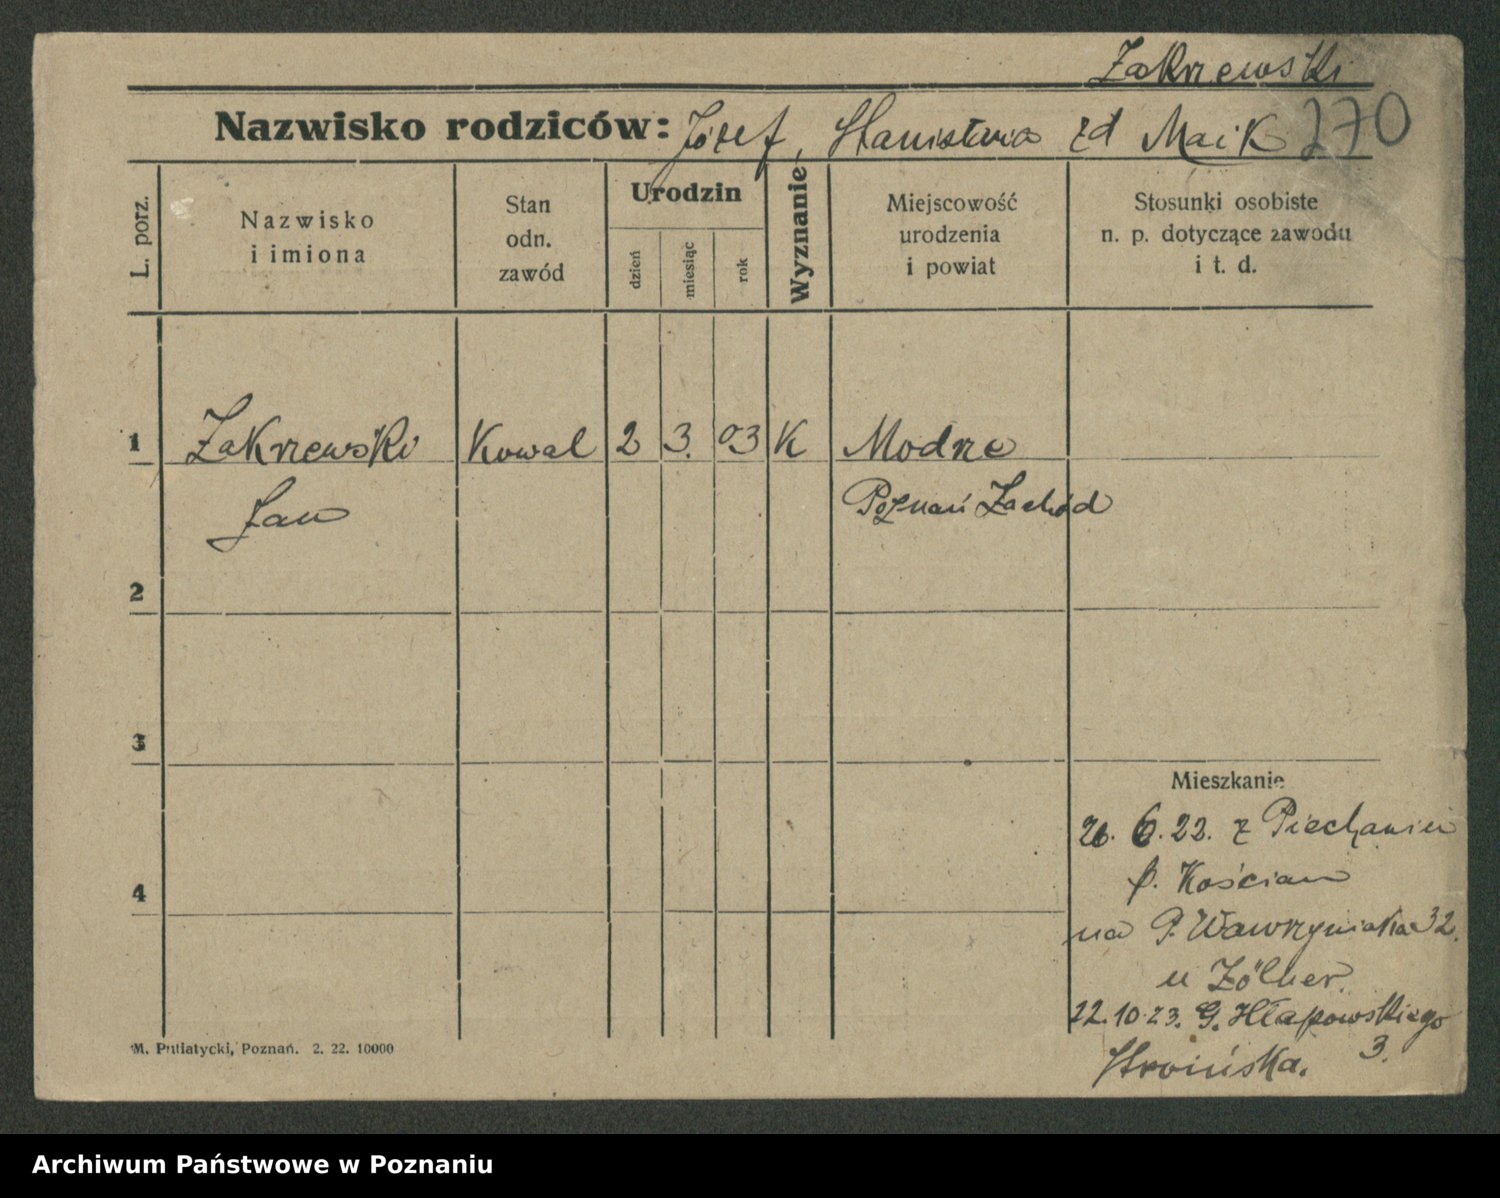 Zakrzewski
Nazwisko rodziców: Józef, Stanisława zd Maik 270
L. porz.
Nazwisko i imiona
Stan odn. zawód
Urodzin
dzień miesiąc rok
Wyznanie
Miejscowość urodzenia i powiat
Stosunki osobiste n. p. dotyczące zawodu i t. d.
1 Zakrzewski Kowal 2 3. 03 K Modrze
Jan Poznań Zachód
2
3
Mieszkanie
26. 6. 22. z Piechanin
p. Kościan
4
na P. Wawrzyniaka 32.
u Zölner.
22.10.23. G. Hłapowskiego
3.
Stroińska.
M. Putiatycki, Poznań. 2. 22. 10000
Archiwum Państwowe w Poznaniu